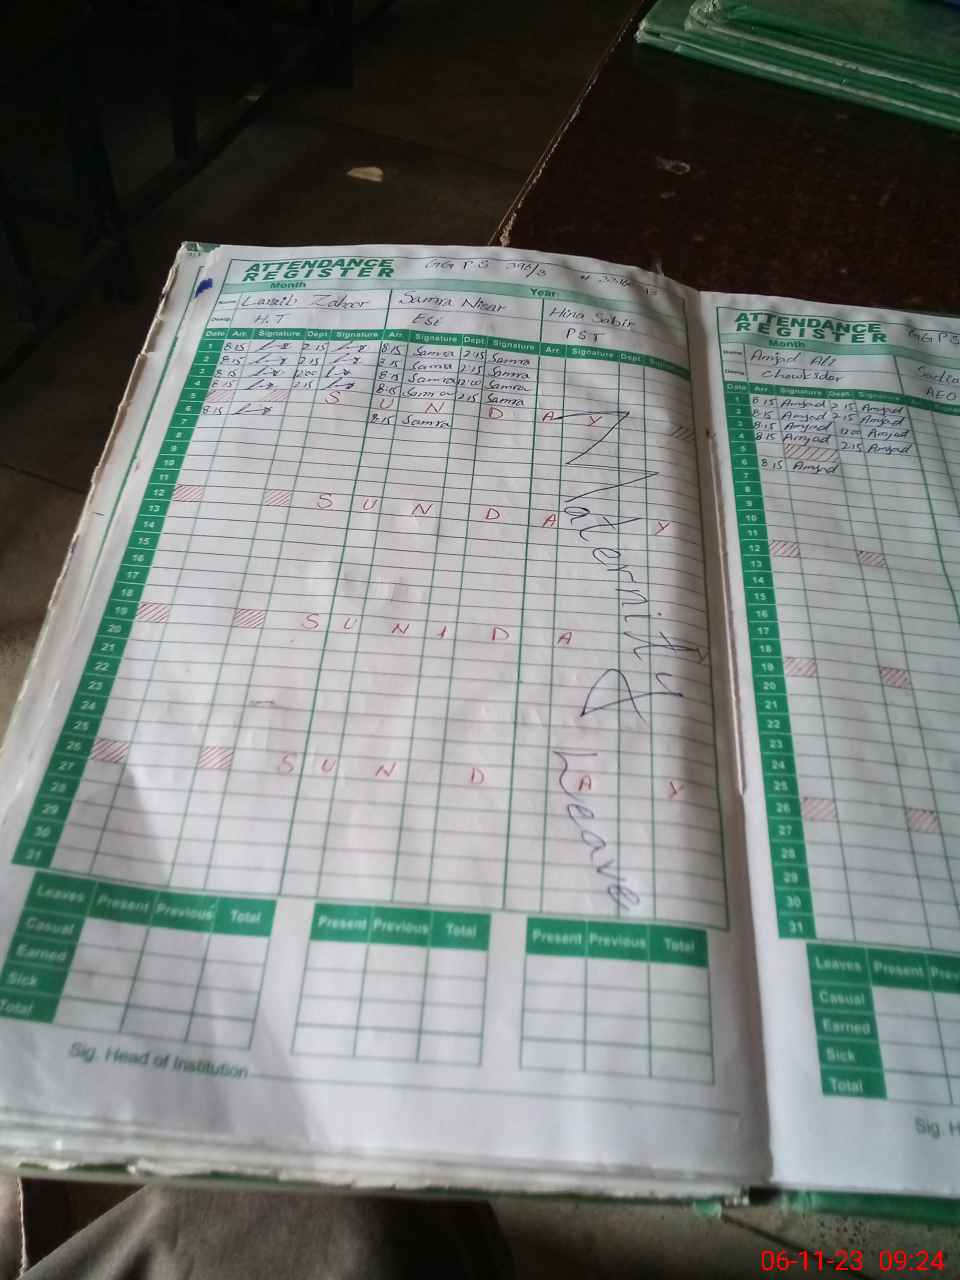 ATTENDANCE REGISTER GGPS 396/3
Month Year:
Name Laraib Zahoor Samra Nisar Hina Sabir
Desig: H.T ESE PST
Date Arr. Signature Dept Signature Arr. Signature Dept. Signature Arr. Signature Dept. Signature
1 8:15 2:15 8:15 Samra 2:15 Samra
2 8:15 2:15 Samra 2:15 Samra
3 8:15 12:00 8:15 Samra 12:00 Samra
4 8:15 2:15 8:15 Samra 2:15 Samra
5 S U N D A Y
6 8:15 8:15 Samra
7
8
9
10
11
12 S U N D A Y
13
14
15
16
17
18
19 S U N D A
20
21
22
23
24
25
26 S U N D A Y
27
28
29
30
31
Maternity Leave
Leaves Present Previous Total Present Previous Total Present Previous Total
Casual
Earned
Sick
Total
Sig. Head of Institution
ATTENDANCE REGISTER GGPS
Month
Name Amjad Ali
Desig: Chowkidar AEO
Date Arr. Signature Dept. Signature
1 8:15 Amjad 2:15 Amjad
2 8:15 Amjad 2:15 Amjad
3 8:15 Amjad 12:00 Amjad
4 8:15 Amjad 2:15 Amjad
5
6 8:15 Amjad
7
8
9
10
11
12
13
14
15
16
17
18
19
20
21
22
23
24
25
26
27
28
29
30
31
Leaves Present
Casual
Earned
Sick
Total
Sig.
06-11-23 09:24